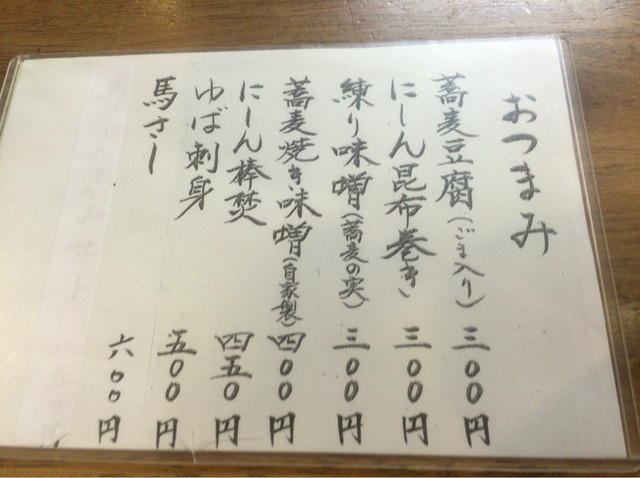 おつまみ
蕎麦豆腐(ごま入り) 三〇〇円
にしん昆布巻き 三〇〇円
練り味噌(蕎麦の実) 三〇〇円
蕎麦焼き味噌(自家製) 四〇〇円
にしん棒焚 四五〇円
ゆば刺身 五〇〇円
馬さし 六〇〇円